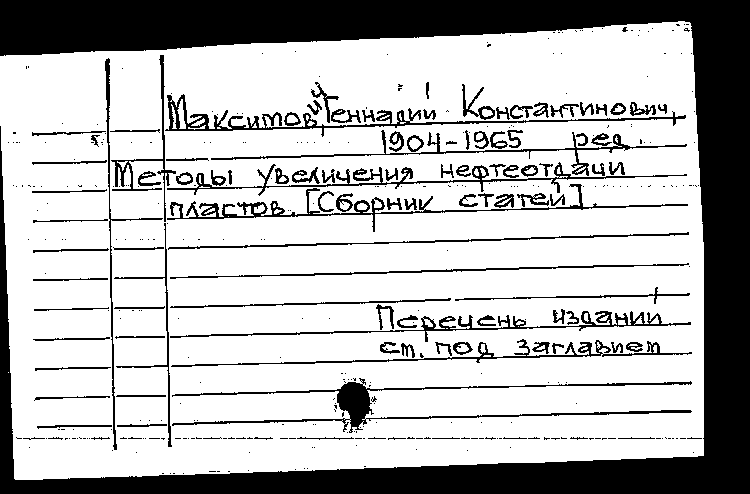 Максимович, Геннадий Константинович,
1904-1965, ред.
Методы увеличения нефтеотдачи
пластов. [Сборник статей].
Перечень изданий
см. под заглавием